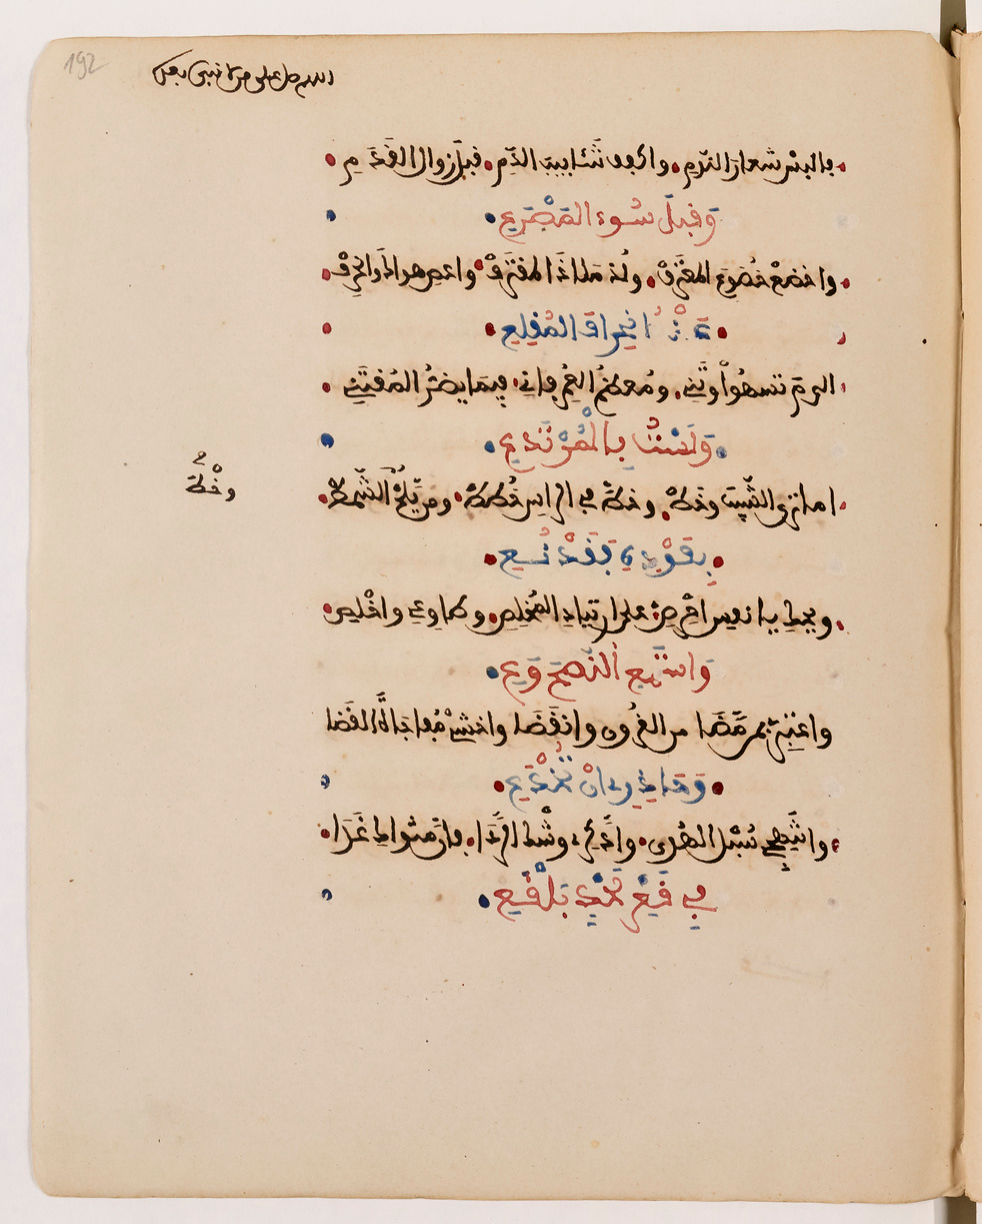 192
اللهم صل على من لا نبي بعده
فالبس شعار الندم • واسكب شئابيب الدم • قبل زوال القدم •
وقبل سوء المصرع •
واخضع خضوع المعترف • ولذ ملاذ المقترف • واعص هواك وانحرف •
عنه انحراف المقلع •
الام تسهوا وتني • ومعظم العمر فاني • فيما يضر المقتني •
ولست بالمرتدع •
اما ترى الشيب وخط • وخط في الراس خطط • ومن يلح الشمط •
وخط
بفوده فقد نعي •
ويحك يا نفس احرص على ارتياد المخلص • وطاوعي واخلص •
واستمع النصح وعي •
واعتبري بمن مضا من القرون وانقضا واخشي مفاجاة القضا
وحاذري ان تخدعي •
وانتهجي سبل الهدى • وادكري وشك الردا • فان مثواك غدا •
في قعر لحد بلقع •